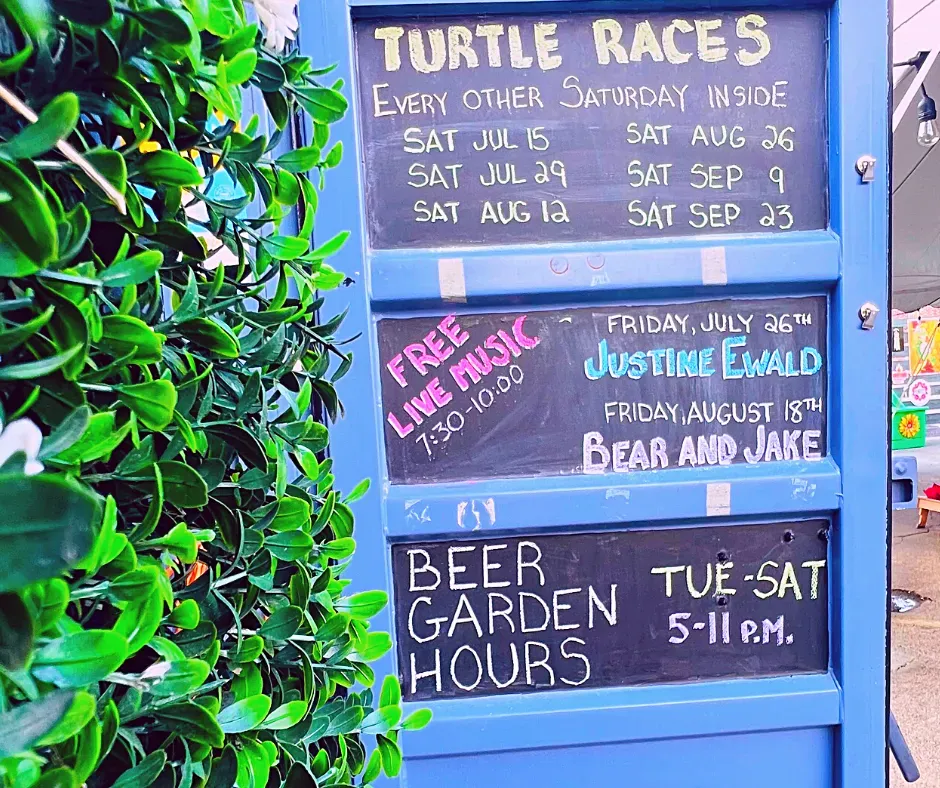 TURTLE RACES
EVERY OTHER SATURDAY INSIDE
SAT JUL 15
SAT JUL 29
SAT AUG 12
SAT AUG 26
SAT SEP 9
SAT SEP 23
FREE
LIVE MUSIC
7:30-10:00
FRIDAY, JULY 26TH
JUSTINE EWALD
FRIDAY, AUGUST 18TH
BEAR AND JAKE
BEER
GARDEN
HOURS
TUE-SAT
5-11 P.M.